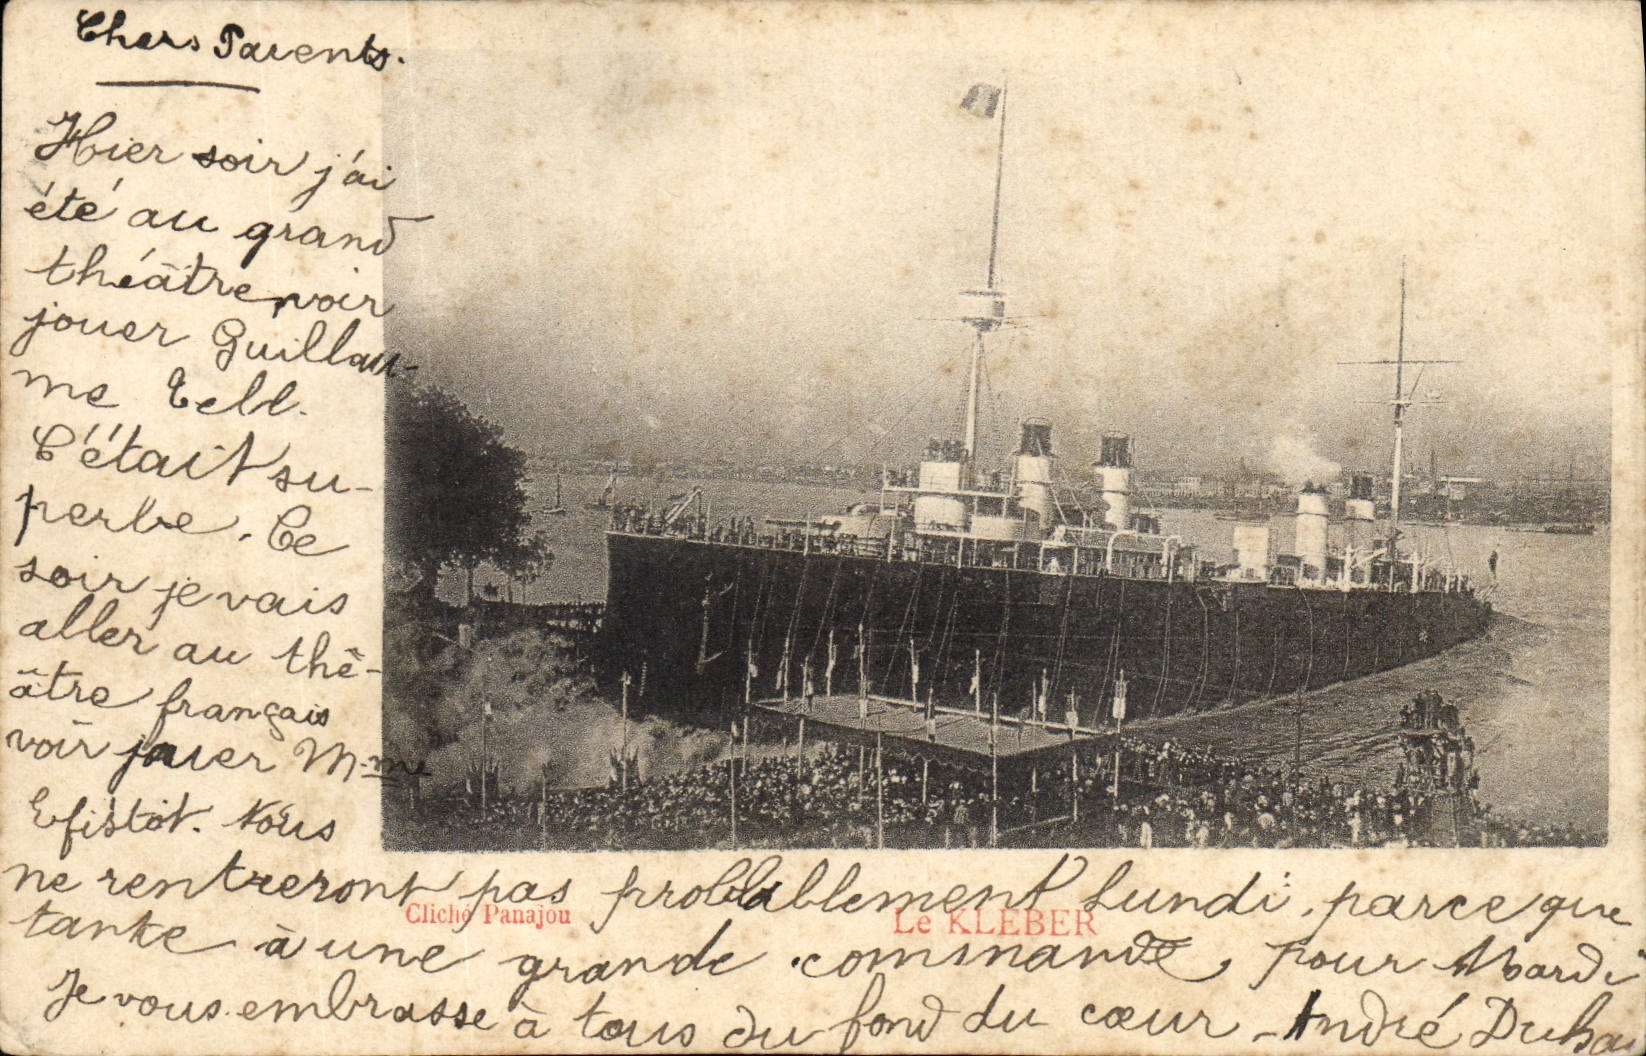 Chers Parents.
Hier soir j'ai
été au grand
théâtre voir
jouer Guillau-
me Tell.
C'était su-
perbe. Ce
soir je vais
aller au thé-
âtre français
voir jouer Mme
Efistot. Nous
ne rentreront pas probablement Lundi, parce que
tante à une grande commande, pour Mardi
Je vous embrasse à tous du fond du cœur - André
Cliché Panajou
Le KLÉBER